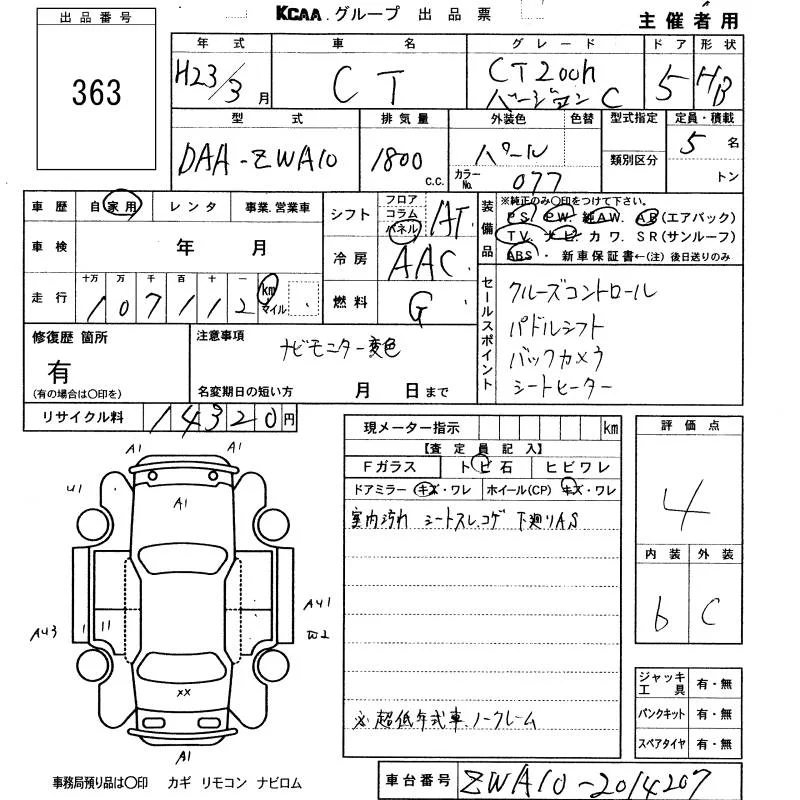 KCAA.グループ 出品票
主催者用
出品番号
363
年式 車名 グレード ドア 形状
H23/3月 CT CT200h バージョンC 5 HB
型式 排気量 外装色 色替 型式指定 定員・積載
DAA-ZWA10 1800 C.C. パール 類別区分 5名
カラーNo. 077 トン
車歴 自家用 レンタ 事業.営業車
シフト フロア コラム パネル AT
装備品
※純正のみ〇印をつけて下さい。
PS. PW. 純AW. AB(エアバック)
TV. ナビ カワ. SR(サンルーフ)
ABS・ 新車保証書←(注)後日送りのみ
車検 年 月
冷房 AAC
走行 十万 万 千 百 十 一
107112 km マイル
燃料 G
セールスポイント
クルーズコントロール
パドルシフト
バックカメラ
シートヒーター
修復歴 箇所
有
(有の場合は〇印を)
注意事項
ナビモニター変色
名変期日の短い方 月 日まで
リサイクル料 14320円
現メーター指示 km
【査定員記入】
Fガラス トビ石 ヒビワレ
ドアミラー キズ・ワレ ホイール(CP) キズ・ワレ
室内汚れ シートスレ.コゲ 下廻りAS
※超低年式車.ノークレーム
評価点
4
内装 外装
b C
A1 A1
A1
U1
AU1
AU3
W2
XX
A1
ジャッキ工具 有・無
パンクキット 有・無
スペアタイヤ 有・無
事務局預り品は〇印 カギ リモコン ナビロム
車台番号 ZWA10-2014207